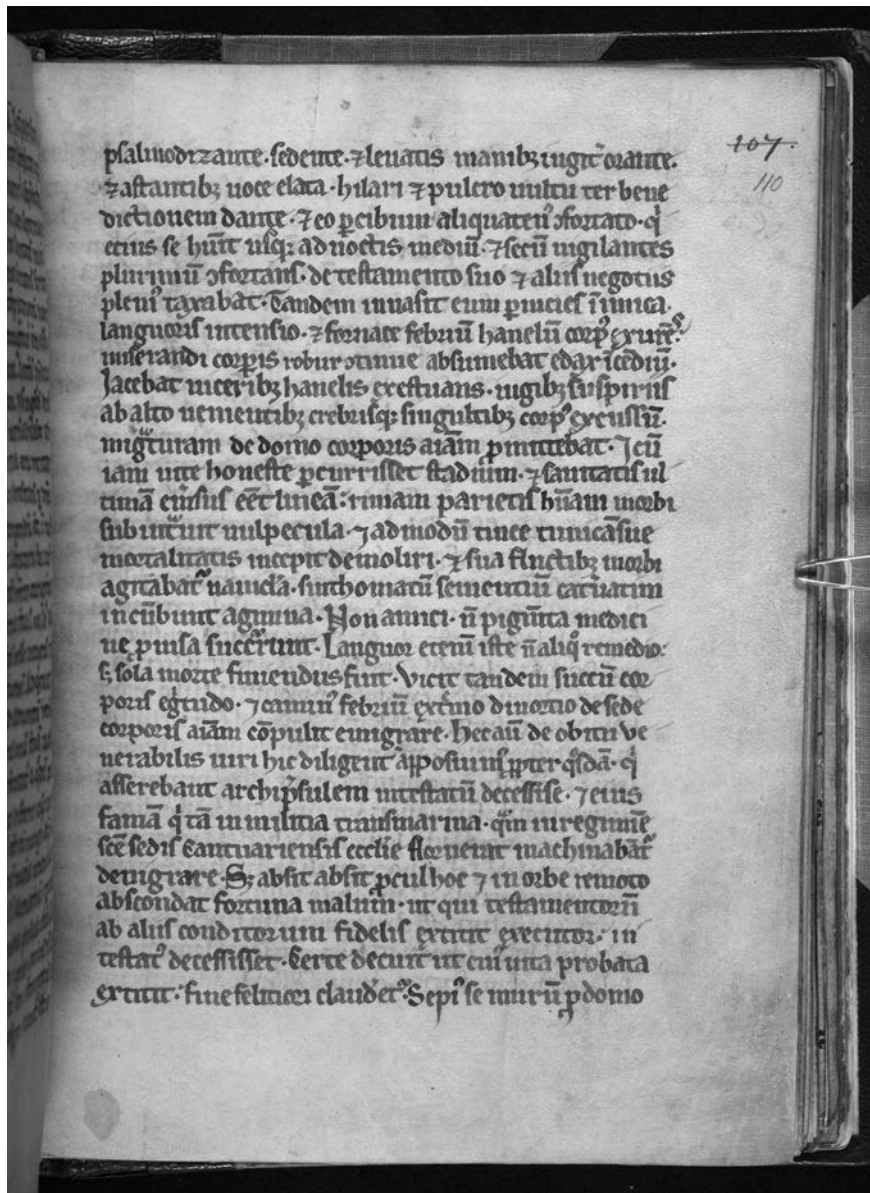 107.
110
psalmodizante. sedente. ⁊ leuatis manibꝫ iugit᷑ orante.
⁊ astantibꝫ uoce elata. hilari ⁊ pulcro uultu ter bene
dictionem dante. ⁊ eo ꝑ cibum aliquatenꝰ ↄfortato. q̇
ecius se hūit usqꝫ ad noctis mediū. ⁊ secū uigilantes
plurimū ↄfortans. de testamento suo ⁊ aliis negotiis
pleniꝰ taxabat. Tandem inuasit eum ꝑnicies īimica.
languoris intensio. ⁊ fornace febriū hanelū corpꝰ exurēs.
miserandi corꝑis robur ↄtinue absumebat edax īcēdiū.
Iacebat uiceribꝫ hanelis exestuans. iugibꝫ suspiriis
ab alto uenientibꝫ crebrisqꝫ singultibꝫ corpꝰ excussū.
mig̃turam de domo corporis aīam ꝓmittebat. ⁊ cū
iam uite honeste ꝑcurrisset stadium. ⁊ sanitatis ul
timā emsus eēt lineā. rimam parietis hūam morbi
subintᷓuit uulpecula. ⁊ ad modū tinee tunicā sue
mortalitatis incepit demoliri. ⁊ sua fluctibꝫ morbi
agitabat᷑ nauicl̄a. sinthomatū seuientiū cat᷑uatim
incūbunt agmina. Non amici. n̄ pigm̄ta medici
ne ꝓuisa succᷓrunt. Languor etenī iste n̄ aliq̊ remedio.
sꝫ sola morte finiendus fuit. Vicit tandem succū cor
poris eg̓tudo. ⁊ caminꝰ febriū ext̓mo diuortio de sede
corporis aīam cōpulit emigrare. Hec aū de obitu ve
nerabilis uiri hic diligent᷑ apposuimꝰ ꝓpter q̊sdā. q̇
asserebant archip̄sulem intestatū decessisse. ⁊ eius
famā q̇ tā in militia transmarina. qᷓm in regimīe
scē sedis Cantuariensis ecclīe floruerat machinabāt᷑
denigrare. Sꝫ absit absit ꝓcul hoc ⁊ in orbe remoto
abscondat fortuna malum. ut qui testamentorū
ab aliis conditorum fidelis extitit executor. in
testatꝰ decessisset. Certe decuit ut cuiꝰ uita probata
extitit. fine feliciori claud̓et᷑. Sepiꝰ se murū ꝓ domo